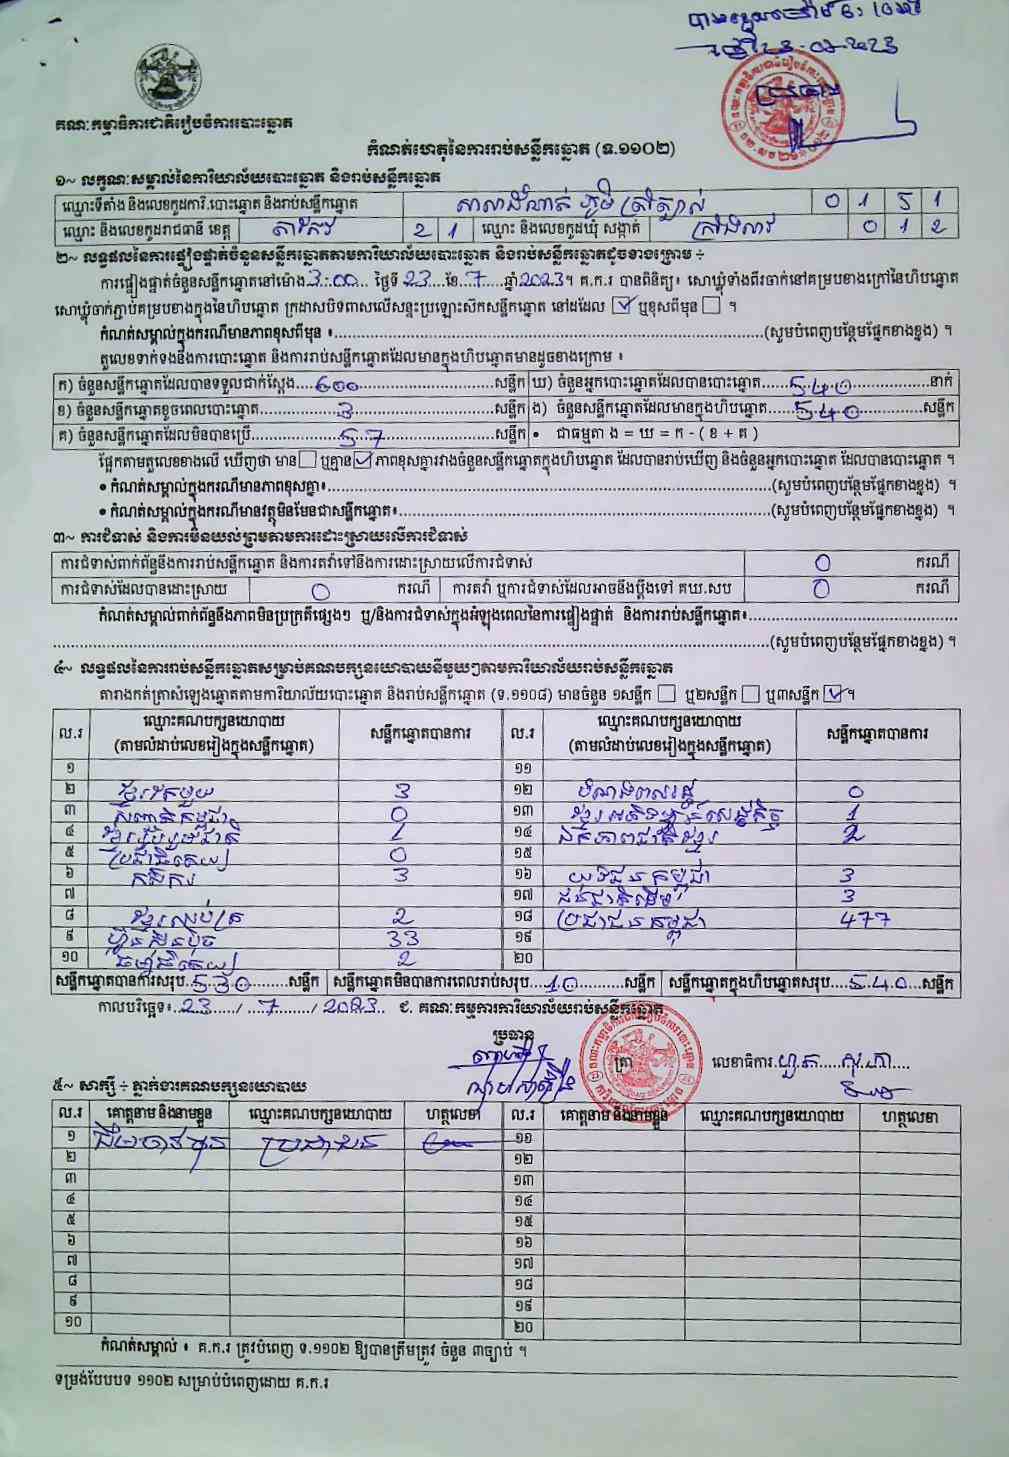 23-07-2023
គណៈកម្មាធិការជាតិរៀបចំការបោះឆ្នោត
កំណត់ហេតុនៃការរាប់សន្លឹកឆ្នោត (ទ.១១០២)
១~ លក្ខណៈសម្គាល់នៃការិយាល័យបោះឆ្នោត និងរាប់សន្លឹកឆ្នោត
ឈ្មោះទីតាំង និងលេខកូដការិ.បោះឆ្នោត និងរាប់សន្លឹកឆ្នោត 0 1 5 1
ឈ្មោះ និងលេខកូដរាជធានី ខេត្ត តាកែវ 2 1 ឈ្មោះ និងលេខកូដឃុំ សង្កាត់ 0 1 2
២~ លទ្ធផលនៃការផ្ទៀងផ្ទាត់ចំនួនសន្លឹកឆ្នោតតាមការិយាល័យបោះឆ្នោត និងរាប់សន្លឹកឆ្នោតដូចខាងក្រោម ÷
ការផ្ទៀងផ្ទាត់ចំនួនសន្លឹកឆ្នោតនៅម៉ោង 3:00 ថ្ងៃទី 23 ខែ 7 ឆ្នាំ 2023។ គ.ក.រ បានពិនិត្យ៖ សោឃ្លុំទាំងពីរចាក់នៅគម្របខាងក្រៅនៃហិបឆ្នោត
សោឃ្លុំចាក់ភ្ជាប់គម្របខាងក្នុងនៃហិបឆ្នោត ក្រដាសបិទពាសលើសន្ទះប្រឡោះសិកសន្លឹកឆ្នោត នៅដដែល ☑ ឬខុសពីមុន ☐ ។
កំណត់សម្គាល់ក្នុងករណីមានភាពខុសពីមុន ៖ (សូមបំពេញបន្ថែមផ្នែកខាងខ្នង) ។
តួលេខទាក់ទងនឹងការបោះឆ្នោត និងការរាប់សន្លឹកឆ្នោតដែលមានក្នុងហិបឆ្នោតមានដូចខាងក្រោម ៖
ក) ចំនួនសន្លឹកឆ្នោតដែលបានទទួលជាក់ស្តែង 600 សន្លឹក ឃ) ចំនួនអ្នកបោះឆ្នោតដែលបានបោះឆ្នោត 540 នាក់
ខ) ចំនួនសន្លឹកឆ្នោតខូចពេលបោះឆ្នោត 3 សន្លឹក ង) ចំនួនសន្លឹកឆ្នោតដែលមានក្នុងហិបឆ្នោត 540 សន្លឹក
គ) ចំនួនសន្លឹកឆ្នោតដែលមិនបានប្រើ 57 សន្លឹក • ជាធម្មតា ង = ឃ = ក - ( ខ + គ )
ផ្អែកតាមតួលេខខាងលើ ឃើញថា មាន ☐ ឬគ្មាន ☑ ភាពខុសគ្នារវាងចំនួនសន្លឹកឆ្នោតក្នុងហិបឆ្នោត ដែលបានរាប់ឃើញ និងចំនួនអ្នកបោះឆ្នោត ដែលបានបោះឆ្នោត ។
• កំណត់សម្គាល់ក្នុងករណីមានភាពខុសគ្នា៖ (សូមបំពេញបន្ថែមផ្នែកខាងខ្នង) ។
• កំណត់សម្គាល់ក្នុងករណីមានវត្ថុមិនមែនជាសន្លឹកឆ្នោត៖ (សូមបំពេញបន្ថែមផ្នែកខាងខ្នង) ។
៣~ ការជំទាស់ និងការមិនយល់ព្រមតាមការដោះស្រាយលើការជំទាស់
ការជំទាស់ពាក់ព័ន្ធនឹងការរាប់សន្លឹកឆ្នោត និងការតវ៉ាទៅនឹងការដោះស្រាយលើការជំទាស់ 0 ករណី
ការជំទាស់ដែលបានដោះស្រាយ 0 ករណី ការតវ៉ា ឬការជំទាស់ដែលអាចនឹងប្តឹងទៅ គឃ.សប 0 ករណី
កំណត់សម្គាល់ពាក់ព័ន្ធនឹងភាពមិនប្រក្រតីផ្សេងៗ ឬ/និងការជំទាស់ក្នុងអំឡុងពេលនៃការផ្ទៀងផ្ទាត់ និងការរាប់សន្លឹកឆ្នោត៖
(សូមបំពេញបន្ថែមផ្នែកខាងខ្នង) ។
៤~ លទ្ធផលនៃការរាប់សន្លឹកឆ្នោតសម្រាប់គណបក្សនយោបាយនីមួយៗតាមការិយាល័យរាប់សន្លឹកឆ្នោត
តារាងកត់ត្រាសំឡេងឆ្នោតតាមការិយាល័យបោះឆ្នោត និងរាប់សន្លឹកឆ្នោត (ទ.១១០៨) មានចំនួន ១សន្លឹក ☐ ឬ២សន្លឹក ☐ ឬ៣សន្លឹក ☑ ។
ល.រ ឈ្មោះគណបក្សនយោបាយ (តាមលំដាប់លេខរៀងក្នុងសន្លឹកឆ្នោត) សន្លឹកឆ្នោតបានការ ល.រ ឈ្មោះគណបក្សនយោបាយ (តាមលំដាប់លេខរៀងក្នុងសន្លឹកឆ្នោត) សន្លឹកឆ្នោតបានការ
១ ១១
២ ខ្មែរតែមួយ 3 ១២ 0
៣ 0 ១៣ ខ្មែរអភិវឌ្ឍន៍សេដ្ឋកិច្ច 1
៤ ខ្មែររួបរួមជាតិ 1 ១៤ ឯកភាពជាតិខ្មែរ 2
៥ 0 ១៥
៦ កសិករ 3 ១៦ យុវជនកម្ពុជា 3
៧ ១៧ ជនជាតិដើម 3
៨ 2 ១៨ ប្រជាជនកម្ពុជា 477
៩ ហ្វ៊ុនស៊ិនប៉ិច 33 ១៩
១០ 2 ២០
សន្លឹកឆ្នោតបានការសរុប 530 សន្លឹក សន្លឹកឆ្នោតមិនបានការពេលរាប់សរុប 10 សន្លឹក សន្លឹកឆ្នោតក្នុងហិបឆ្នោតសរុប 540 សន្លឹក
កាលបរិច្ឆេទ៖ 23 / 7 / 2023 ជ. គណៈកម្មការការិយាល័យរាប់សន្លឹកឆ្នោត
ប្រធាន
ត្រា លេខាធិការ
៥~ សាក្សី ÷ ភ្នាក់ងារគណបក្សនយោបាយ
ល.រ គោត្តនាម និងនាមខ្លួន ឈ្មោះគណបក្សនយោបាយ ហត្ថលេខា ល.រ គោត្តនាម និងនាមខ្លួន ឈ្មោះគណបក្សនយោបាយ ហត្ថលេខា
១ ប្រជាជន ១១
២ ១២
៣ ១៣
៤ ១៤
៥ ១៥
៦ ១៦
៧ ១៧
៨ ១៨
៩ ១៩
១០ ២០
កំណត់សម្គាល់ ៖ គ.ក.រ ត្រូវបំពេញ ទ.១១០២ ឱ្យបានត្រឹមត្រូវ ចំនួន ៣ច្បាប់ ។
ទម្រង់បែបបទ ១១០២ សម្រាប់បំពេញដោយ គ.ក.រ